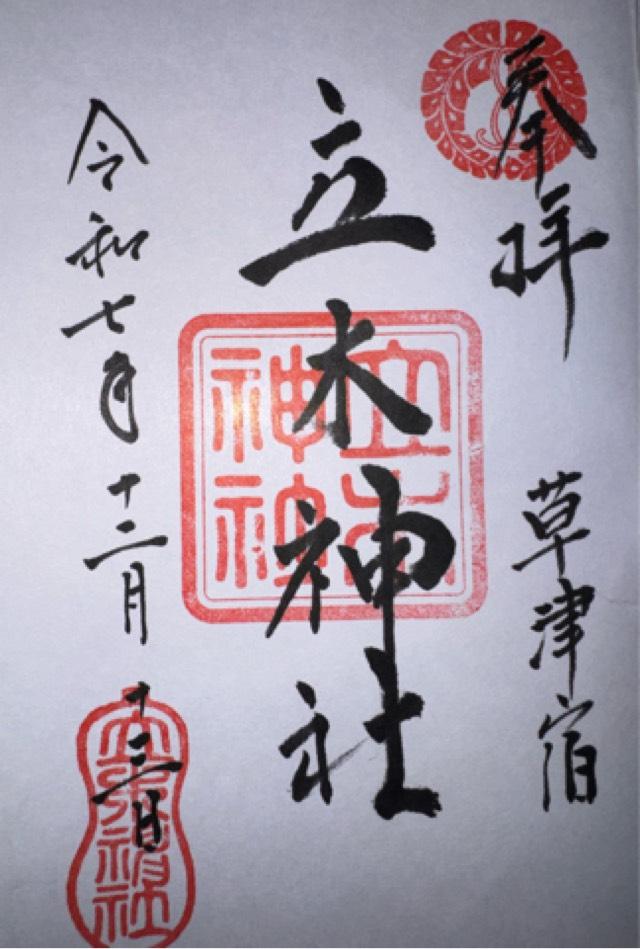 奉拝
草津宿
立木神社
立木神社
令和七年十二月十三日